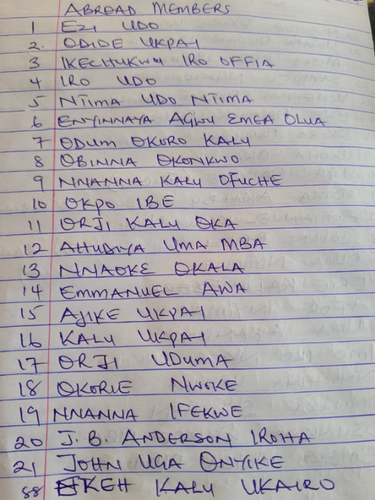 ABROAD MEMBERS
1 EZI UDO
2. ODIDE UKPAI
3 IKECHUKWU IRO OFFIA
4 IRO UDO
5 NTIMA UDO NTIMA
6 ENYINNAYA AGWU EMEA OLUA
7 ODUM OKORO KALU
8 OBINNA OKONKWO
9 NNANNA KALU OFUCHE
10 OKPO IBE
11 ORJI KALU OKA
12 AHUDIYA UMA MBA
13 NNAOKE OKALA
14 EMMANUEL AWA
15 AJIKE UKPAI
16 KALU UKPAI
17 ORJI UDUMA
18 OKORIE NWOKE
19 NNANNA IFEKWE
20 J. B. ANDERSON IROHA
21 JOHN UGA ONYIKE
KEH KALU UKAIRO